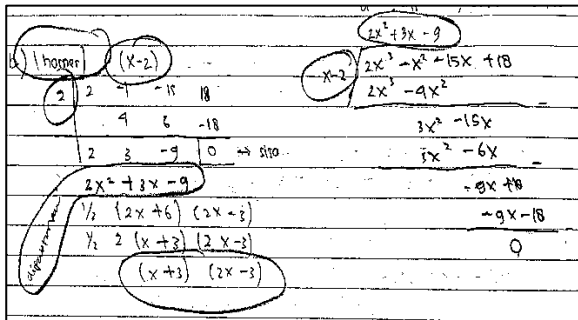 b) (horner) (x-2)
2 | 2 -1 -15 18
4 6 -18
2 3 -9 | 0 → sisa
2x² + 3x - 9
1/2 (2x+6) (2x-3)
1/2 2 (x+3) (2x-3)
(x+3) (2x-3)
2x² + 3x - 9
x-2 2x³ - x² - 15x + 18
2x³ - 4x²
3x² - 15x
3x² - 6x
-9x + 18
-9x - 18
0